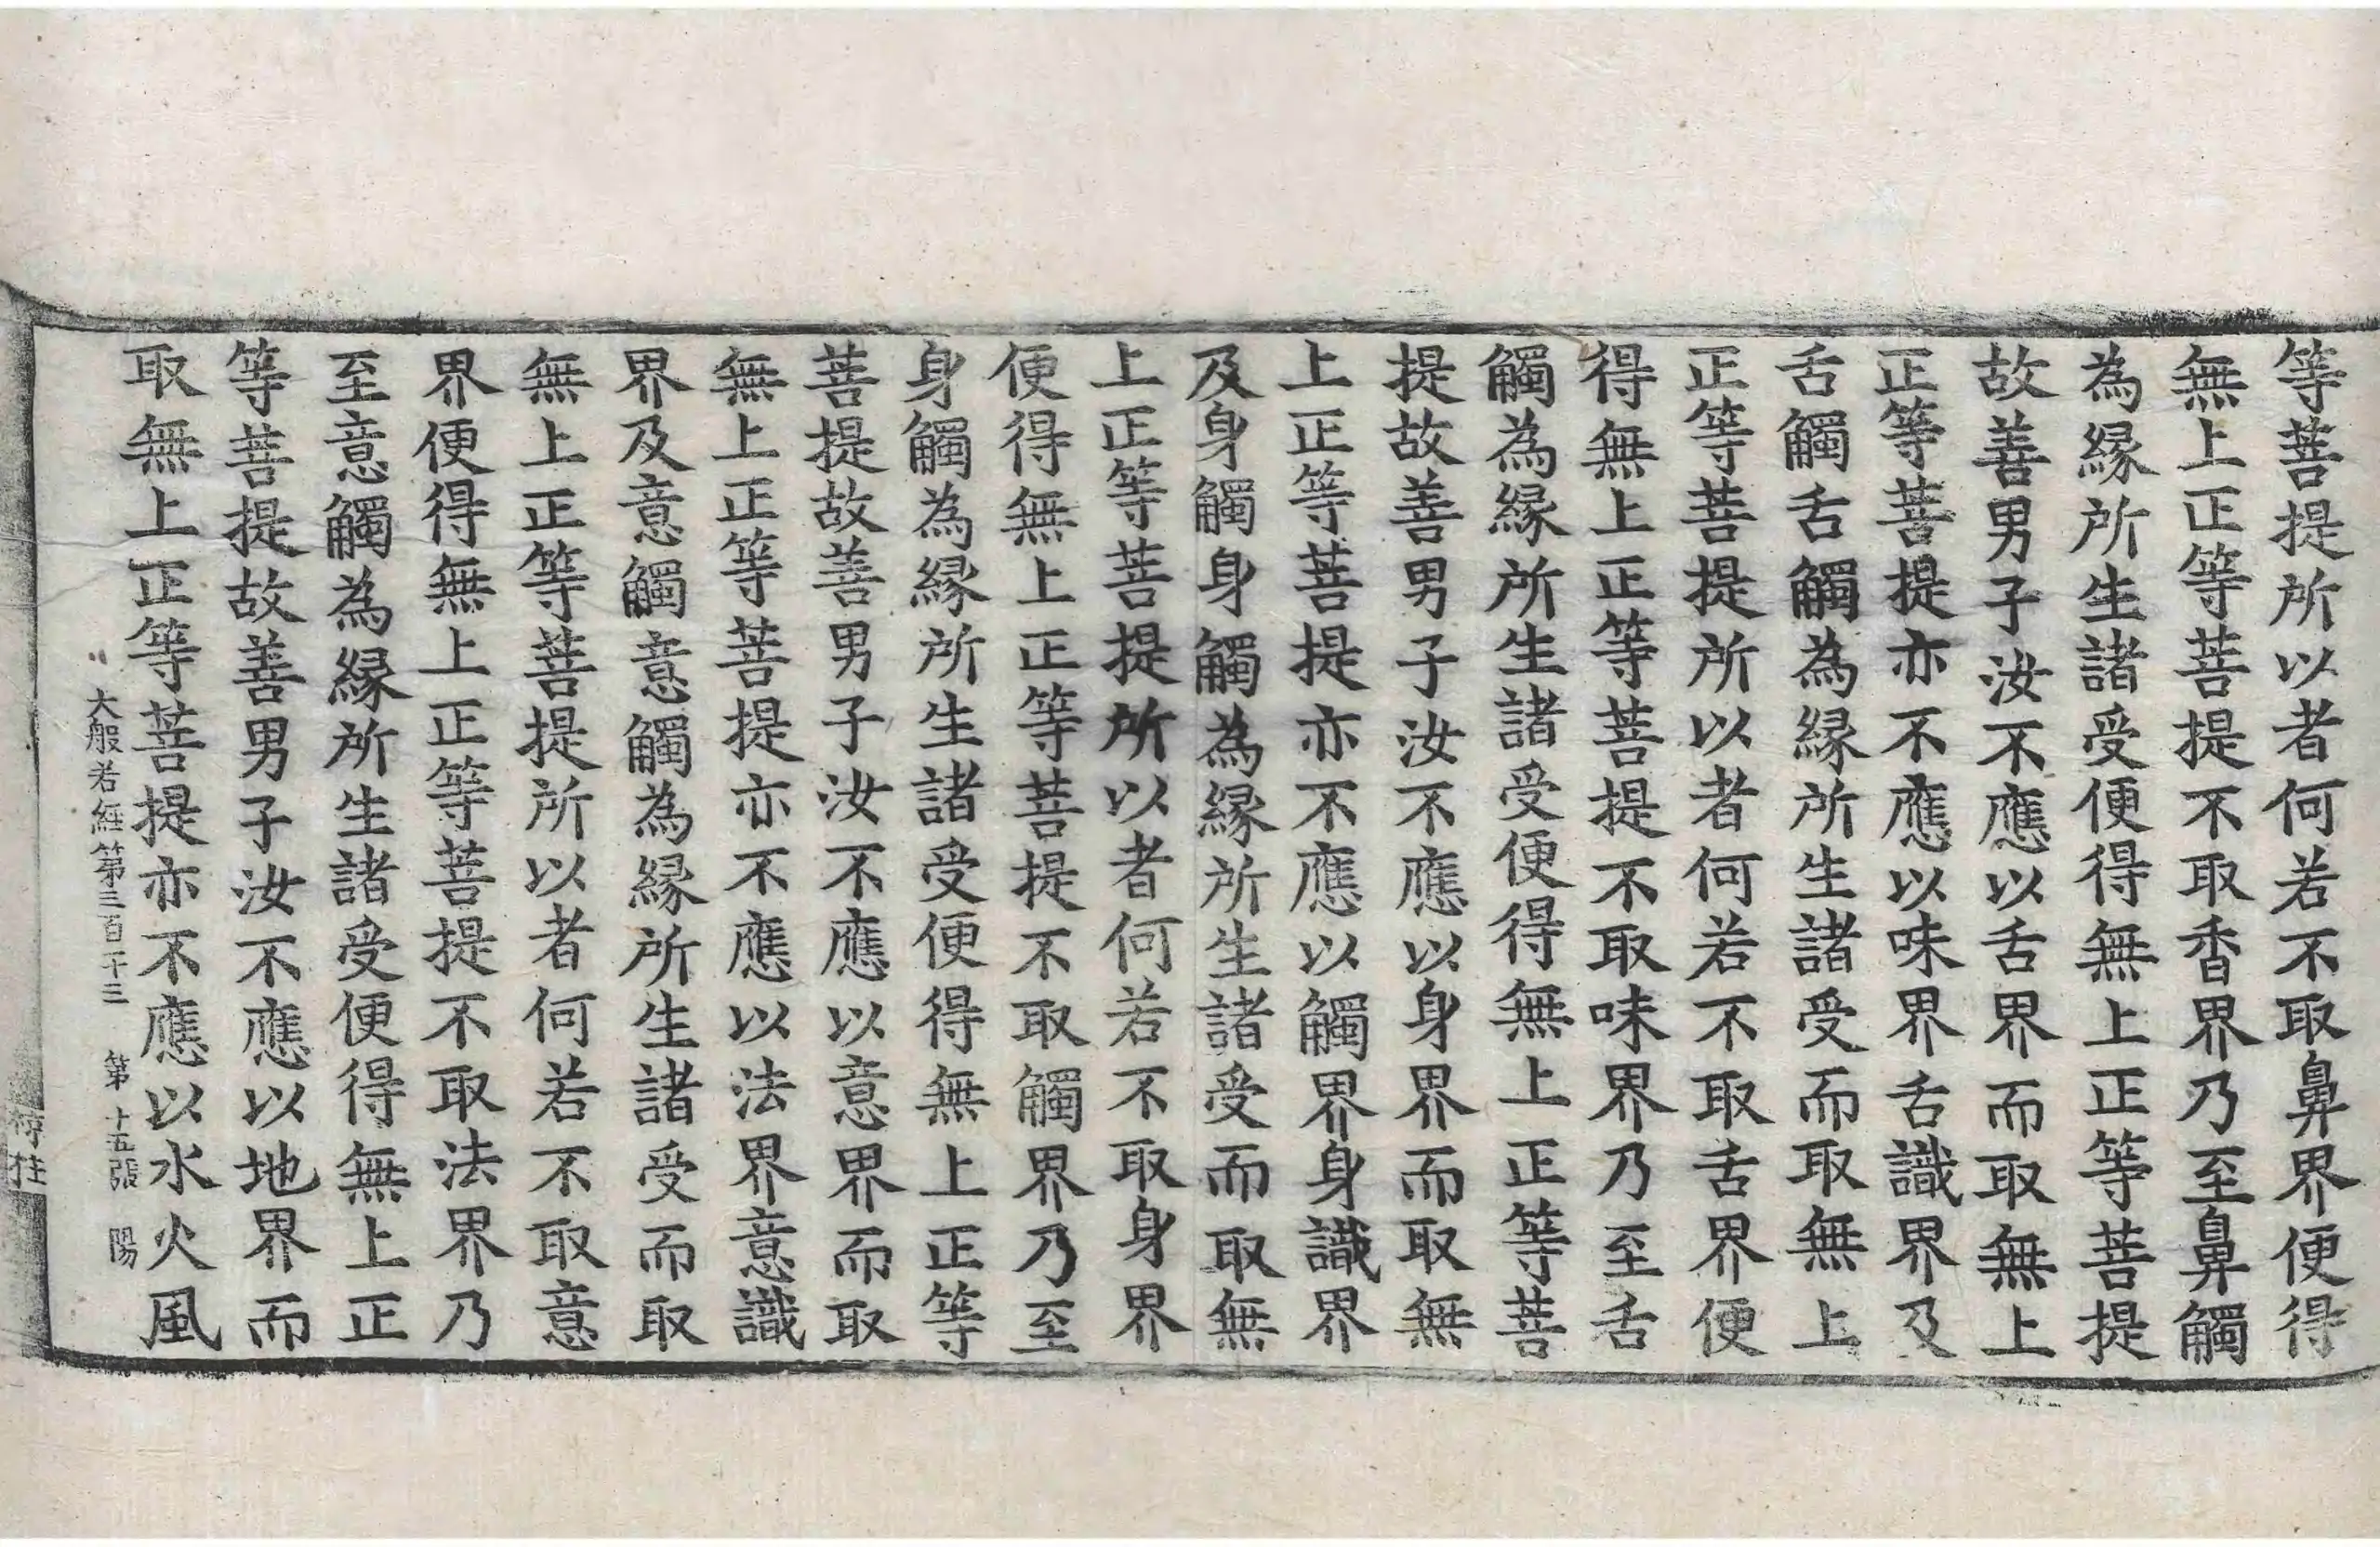 等菩提所以者何若不取鼻界便得
無上正等菩提不取香界乃至鼻觸
為緣所生諸受便得無上正等菩提
故善男子汝不應以舌界而取無上
正等菩提亦不應以味界舌識界及
舌觸舌觸為緣所生諸受而取無上
正等菩提所以者何若不取舌界便
得無上正等菩提不取味界乃至舌
觸為緣所生諸受便得無上正等菩
提故善男子汝不應以身界而取無
上正等菩提亦不應以觸界身識界
及身觸身觸為緣所生諸受而取無
上正等菩提所以者何若不取身界
便得無上正等菩提不取觸界乃至
身觸為緣所生諸受便得無上正等
菩提故善男子汝不應以意界而取
無上正等菩提亦不應以法界意識
界及意觸意觸為緣所生諸受而取
無上正等菩提所以者何若不取意
界便得無上正等菩提不取法界乃
至意觸為緣所生諸受便得無上正
等菩提故善男子汝不應以地界而
取無上正等菩提亦不應以水火風
大般若經第三百卄三 第十五張 陽